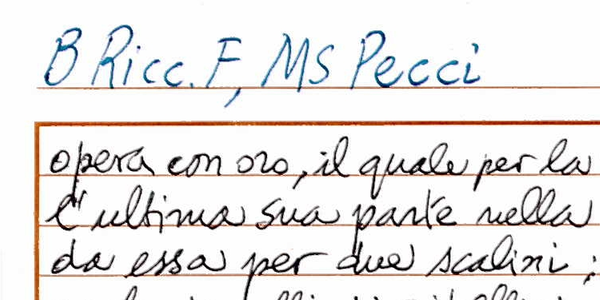 B Ricc. F, MS Pecci
opera con oro, il quale per la
l'ultima sua parte nella
da essa per due scalini;